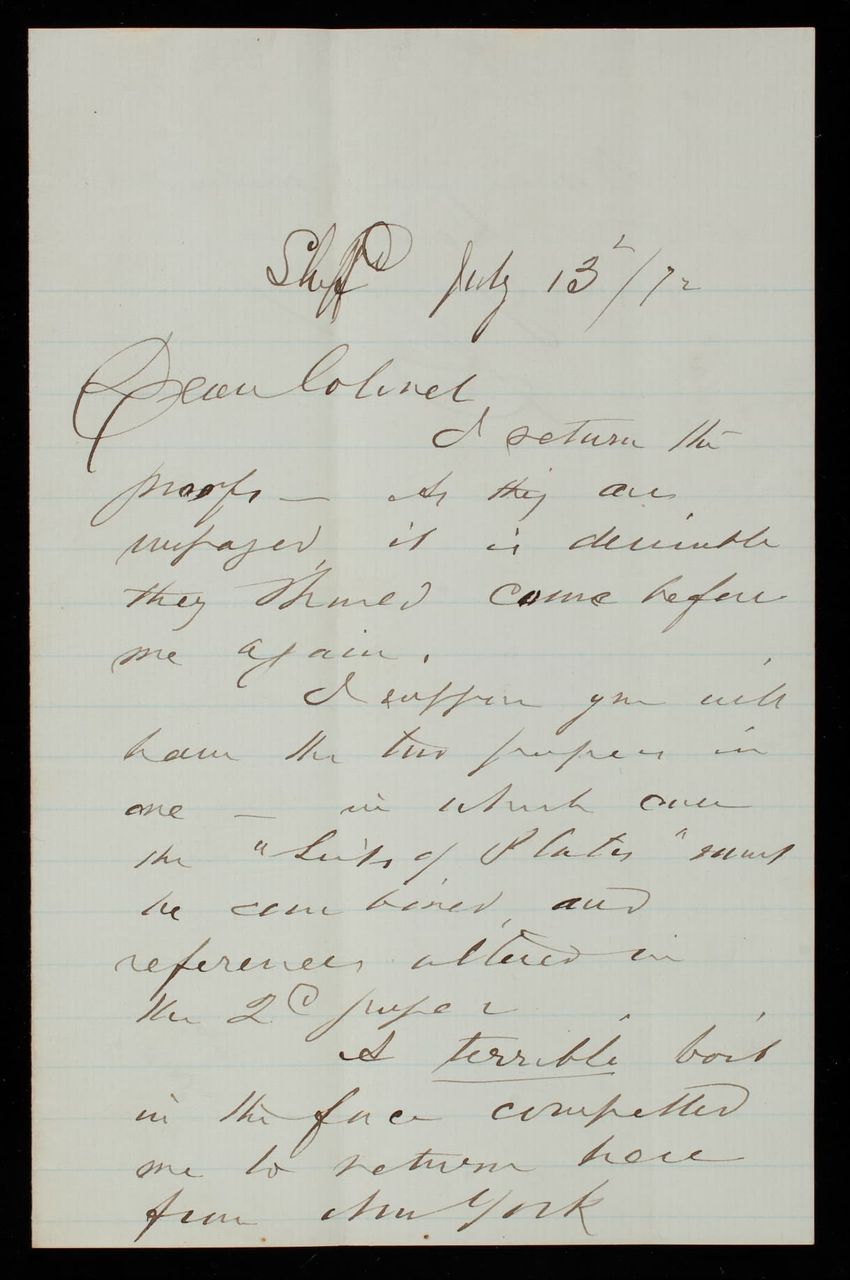 Sheffd July 13th/72
Dear Colonel
I return the
proofs — As they are
unpaged, it is desirable
they should come before
me again.
I suppose you will
have the two papers in
one — in which case
the "Lists of Plates" must
be combined, and
references altered in
the 2d paper
A terrible boil
in the face compelled
me to return here
from New York